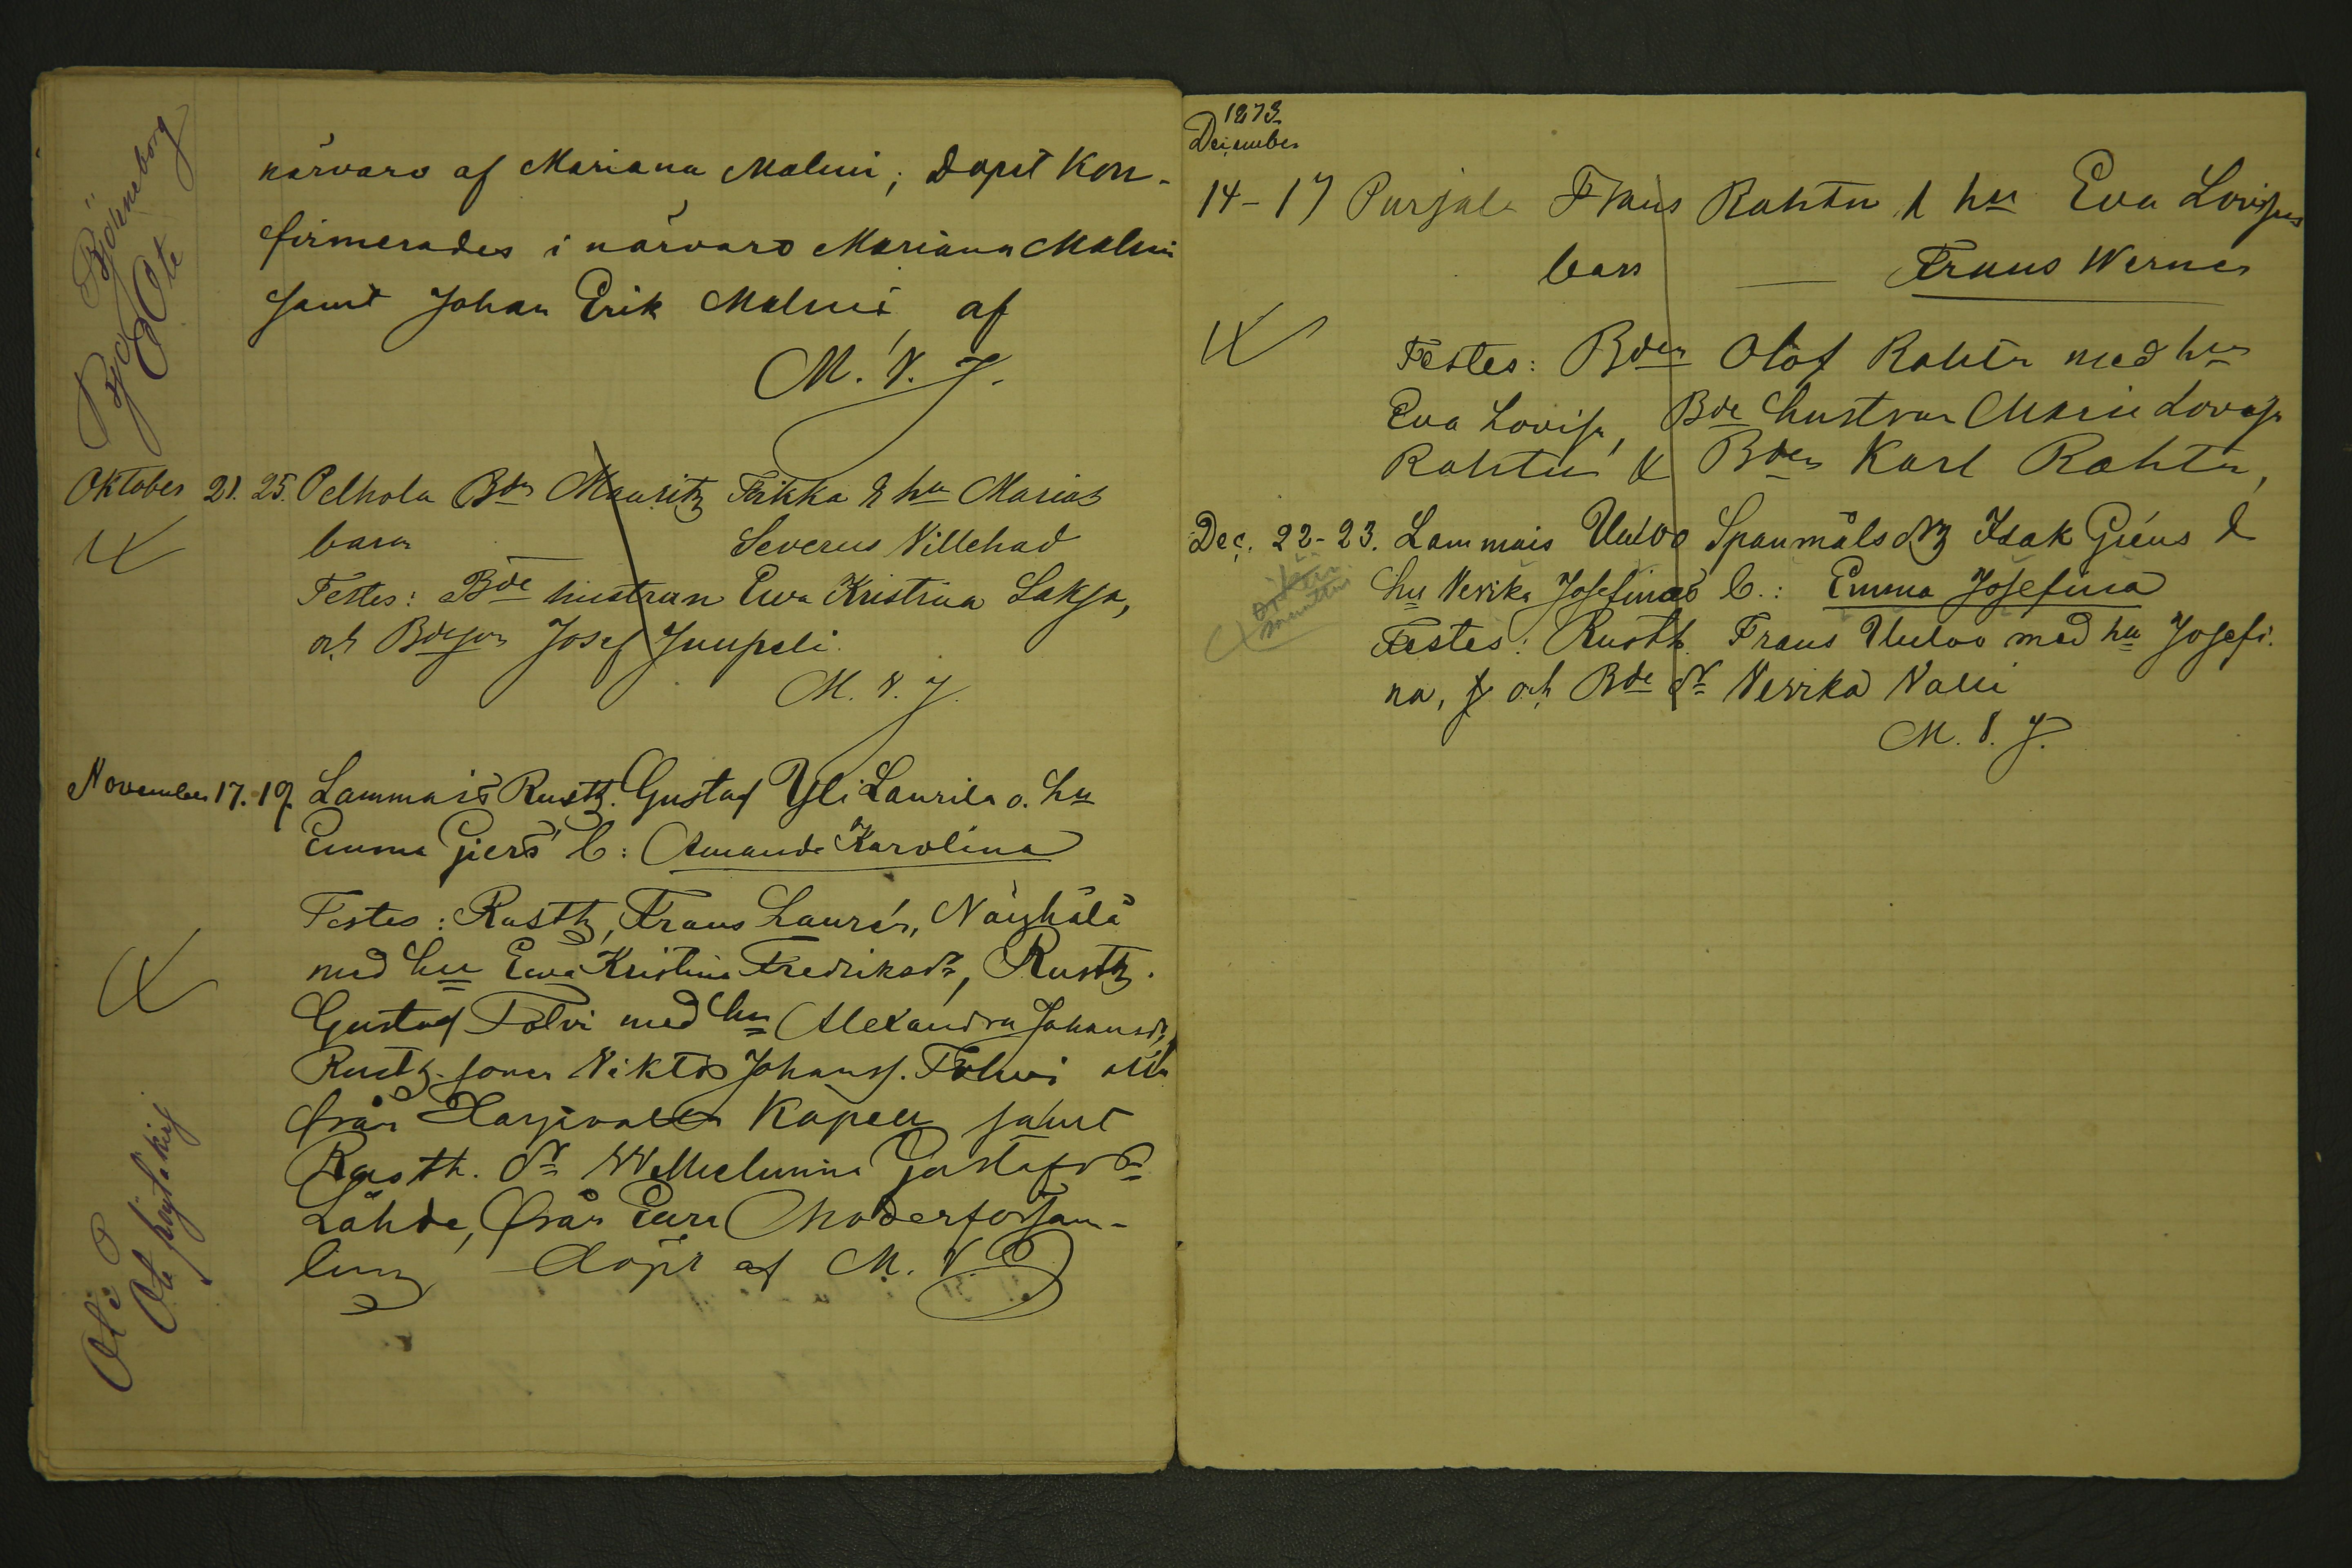 närvaro af Mariana Malmi; dopet kon-
firmerades i närvaro Mariana Malmi
samt Johan Erik Malmi, af
M. V. J.
Björneborg
Oktober 21. 25. Pelhola Bdn Mauritz Pirkka & hu Marias
barn Severus Villehad
Testes: Bde hustrun Ewa Kristina Laksa,
och Bdeson Josef Juupeli.
M. V. J.
November 17. 19. Lammais Rusth. Gustaf Yli Laurila o. hu
Emma Giers b: Amanda Karolina
Testes: Rusth, Frans Laurén, Näyhälä
med hu Ewa Kristina Fredriksdr, Rusth.
Gustaf Polvi med hu Alexandra Johansdr,
Rusth. sonen Viktor Johanss. Tolvi alla
från Harjavalta Kapell samt
Rusth. dr Wilhelmina Gustafsdr
Lähde, från Eura Moderförsam-
ling döpt af M. V. J.
1873
December
14-17 Purjala Frans Rahtu & hu Eva Lovisas
barn — Frans Werner
Testes: Bden Olof Rahtu med hu
Eva Lovisa, Bde hustrun Maria Lovisa
Rahtu & Bden Karl Rahtu,
Dec. 22-23. Lammais Uuvoo Spanmålsdrg Isak Giéns &
hu Verika Josefinas b.: Emma Josefina
Testes: Rusth. Frans Uuvoo med hu Josefi-
na, & och Bde dr Verrka Valli
M. V. J.